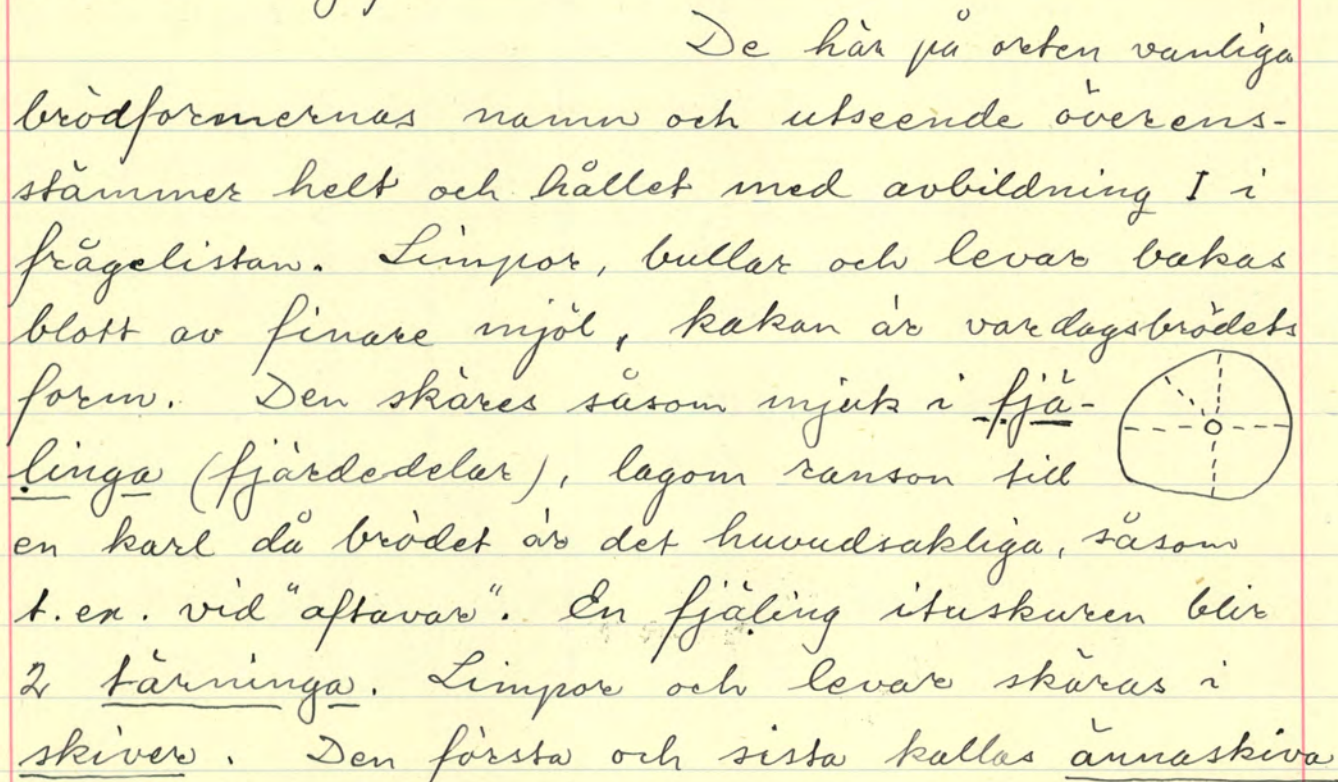 De här på orten vanliga
brödformernas namn och utseende överens-
stämmer helt och hållet med avbildning I i
frågelistan. Limpor, bullar och levar bakas
blott av finare mjöl, kakan är vardagsbrödets
form. Den skäres såsom mjuk i fjä-
linga (fjärdedelar), lagom ranson till
en karl då brödet är det huvudsakliga, såsom
t.ex. vid "aftavar". En fjäling ituskuren blir
2 tärninga. Limpor och levar skäras i
skiver. Den första och sista kallas ännaskiva